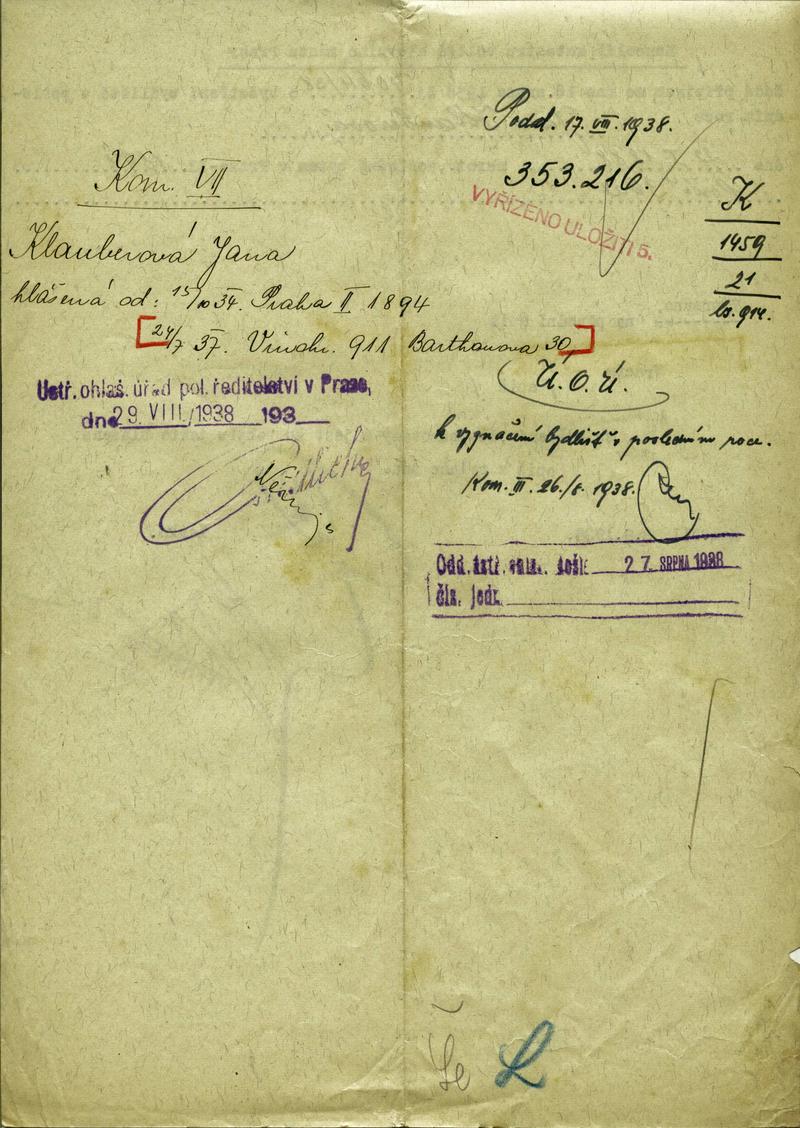 Podd. 17. VIII. 1938.
353.216.
VYŘÍZENO ULOŽITI 5.
K
1459
21
ls. 914.
Kom. VII
Klauberová Jana
hlášená od: 15/10 34. Praha II 1894
[24/7 37. Vinohr. 911 Barthouova 30]
Ústř. ohlaš. úřad pol. ředitelství v Praze,
dne 29. VIII. 1938 193
Ú.O.Ú.
k vyznačení bydlišť v posledním roce.
Kom. III. 26./8. 1938.
Odd. ústř. došlo 27. SRPNA 1938
čís. jedn.
Še L